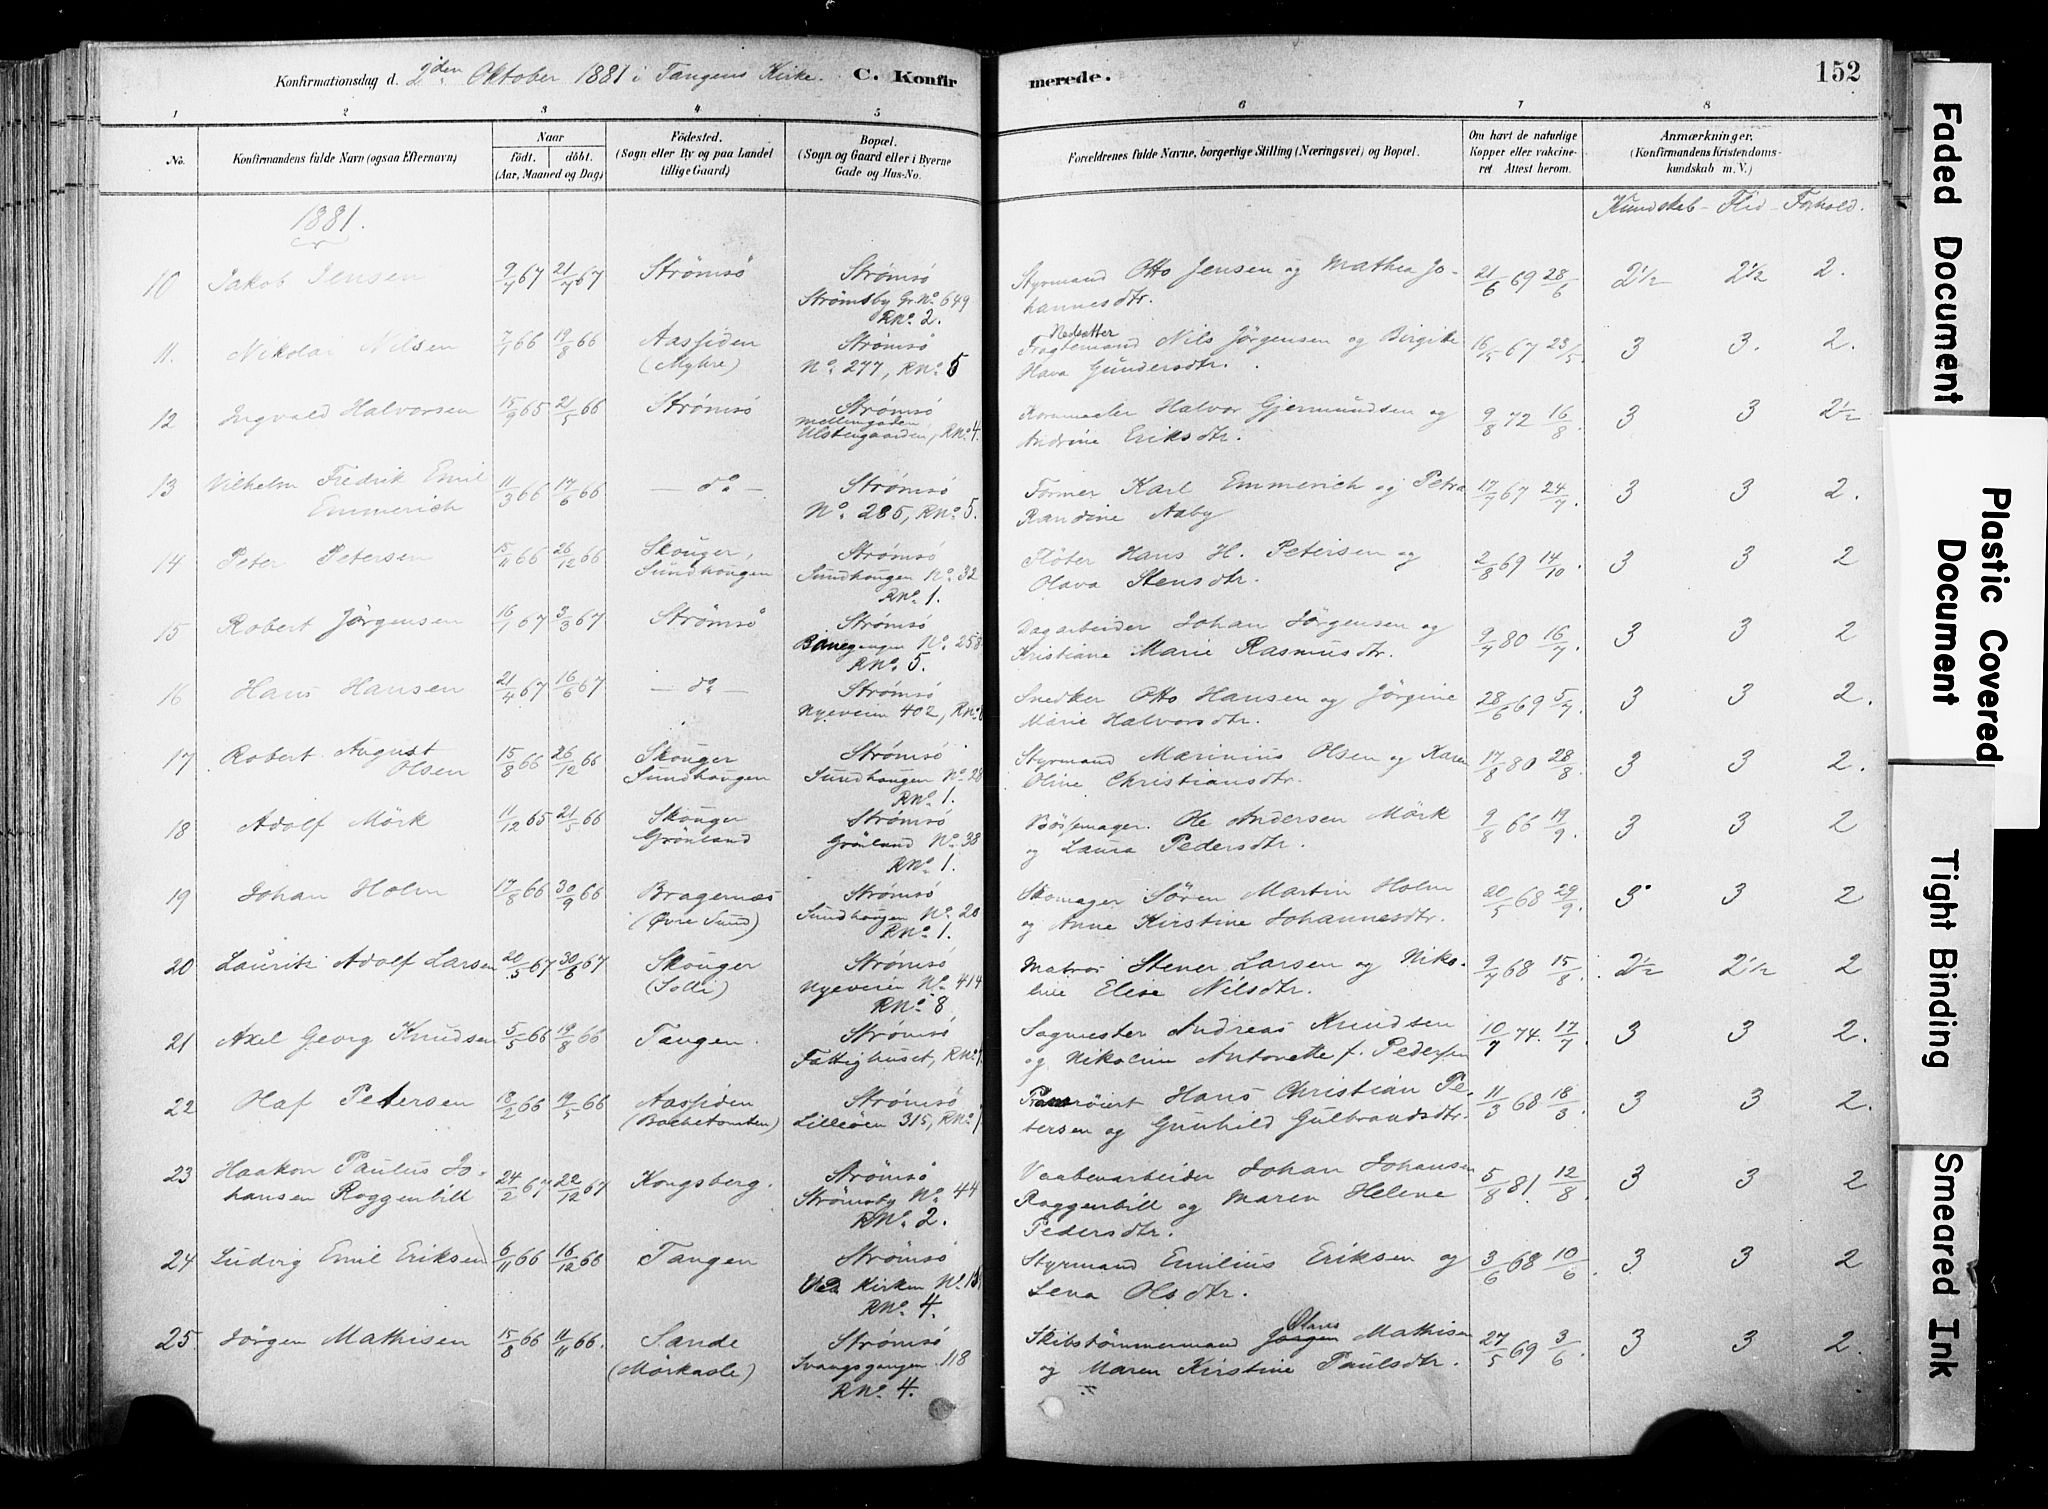 Konfirmationsdag d. 2den Oktober 1881 i Tangens Kirke. C. Konfirmerede. 152
1 2 3 4 5 6 7 8
No.
Konfirmandens fulde Navn (ogsaa Efternavn)
Naar
födt. döbt.
(Aar, Maaned og Dag)
Födested.
(Sogn eller By og paa Landet
tillige Gaard)
Bopæl.
(Sogn og Gaard eller i Byerne
Gade og Hus-No.
Forældrenes fulde Navne, borgerlige Stilling (Næringsvei) og Bopæl.
Om havt de naturlige
Kopper eller vakcine-
ret. Attest herom.
Anmærkninger.
(Konfirmandens Kristendoms-
kundskab m. V.)
1881.
Kundskab - Flid - Forhold.
10 Jakob Jensen 9/4 67 21/7 67 Strömsö Strømsö Styrmand Otto Jensen og Mathea Jo- 21/6 69 28/6 2½ 2½ 2.
Strømsby Gr. No. 649 hannesdtr.
RNo. 2.
11. Nikolai Nilsen 7/7 66 19/8 66 Aassiden Strømsö Nedsætter Fragtemand Nils Jörgensen og Birgite 16/5 67 23/5. 3 3. 2.
(Myhre) No. 277, RNo. 5 Hava Gundersdtr.
12 Ingvald Halvorsen 15/9 65 21/5 66 Strømsö Strømsö Kornmaaler Halvor Gjermundsen og 9/8 72 16/8 3 3 2½
Mellengaden, Andrine Eriksdtr.
Ulstengaarden, RNo. 4.
13 Vilhelm Fredrik Emil 11/3 66 17/6 66 - do - Strømsö Former Karl Emmerich og Petra 17/7 67 24/7. 3 3 2.
Emmerich No. 285, RNo. 5. Randine Aaby
14 Peter Petersen 15/11 66 26/12 66 Skouger, Strømsö Flöter Hans H. Petersen og 2/8 69 14/10. 3 3 2
Sundhougen Sundhougen No. 32 Olava Stensdtr.
RNo. 1.
15 Robert Jörgensen 16/1 67 3/3 67 Strömsö Strømsö Dagarbeider Johan Jörgensen og 9/7 80 16/7 3 3 2
No. 258. Kristiane Marie Rasmusdtr.
RNo. 5.
16 Hans Hansen 21/4 67 16/6 67 - do - Strømsö Snedker Otto Hansen og Jörgine 28/6 69 5/7. 3 3 2.
Nyeveien 402, RNo. Marie Halvorsdtr.
17 Robert August 15/8 66 26/12 66 Skouger Strømsö Styrmand Marinius Olsen og Karen 17/8 80 28/8 3 3 2.
Olsen Sundhougen Sundhougen No. 28 Oline Christiansdtr.
RNo. 1.
18 Adolf Mörk 11/12 65 21/5 66 Skouger Strømsö Bössemager. Ole Andersen Mörk 9/8 66 19/9. 3 3 2
Grönland Grönland No. 38 og Laura Pedersdtr.
RNo. 1.
19 Johan Holm 17/8 66 30/9 66 Bragernæs Strømsö Skomager Sören Martin Holm 20/5 68 29/9. 3 3 2
(Øvre Sund) Sundhougen No. 20 og Anne Kirstine Johannesdtr.
RNo. 1.
20 Lauritz Adolf Larsen 20/5 67 30/6 67 Skouger Strømsö Matros Stener Larsen og Niko- 9/7 68 15/8. 2½ 2½ 2
(Solli) Nyeveien No. 414 line Elise Nilsdtr.
RNo. 8
21 Axel Georg Knudsen 5/5 66 19/8 66 Tangen. Strømsö Sagmester Andreas Knudsen 10/7 74. 17/7 3 3 2.
Fattighuset, RNo. og Nikoline Antonette f. Pedersen
22 Olaf Petersen 18/2 66 19/5 66 Aassiden Strømsö Hans Christian Pe- 11/3 68 18/3. 3 3 2.
(Bachetomten) Lilleöen 315, RNo. tersen og Gunhild Gulbrandsdtr
23 Haakon Paulus Jo- 24/2 67 22/12 67 Kongsberg. Strømsö Vaabenarbeider Johan Johansen 5/8 81. 12/8 3 3 2
hansen Roggenbill Strömsby No. 44 Roggenbill og Maren Helene
RNo. 2. Pedersdtr.
24 Ludvig Emil Eriksen 6/11 66 16/12 66 Tangen Strømsö Styrmand Emilius Eriksen og 3/6 68 10/6. 3 3 2
Ved Kirken No. 15 Lena Olsdtr.
RNo. 4.
25. Jörgen Mathisen 15/8 66 11/11 66. Sande Strømsö Skibstömmermand Jörgen Olaves Mathisen 27/5 69 3/6. 3 3 2.
(Mörkasle) Svangsgangen 118 og Maren Kirstine Paulsdtr.
RNo. 4.
Faded Document
Plastic Covered
Document
Tight Binding
Smeared Ink